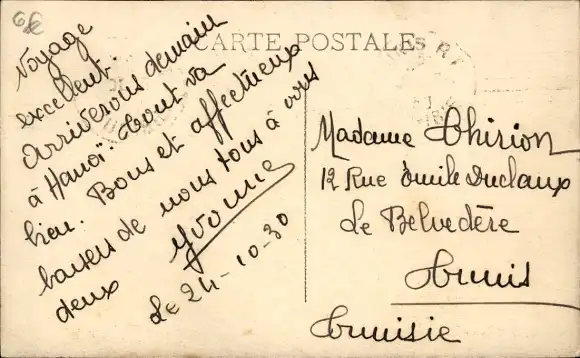 6€
CARTE POSTALE
Voyage
excellent.
Arriverons demain
à Hanoï. Tout va
bien. Bons et affectueux
baisers de nous tous à vous
deux
Yvonne
Le 24-10-30
Madame Thirion
12 Rue Émile Duclaux
Le Belvedère
Tunis
Tunisie